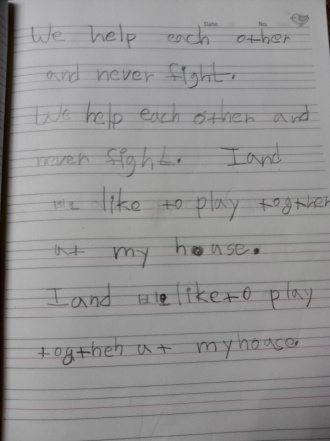 We help each other
and never fight.
We help each other and
never fight. I and
like to play togther
at my house.
I and like to play
togtheh at my hoase.